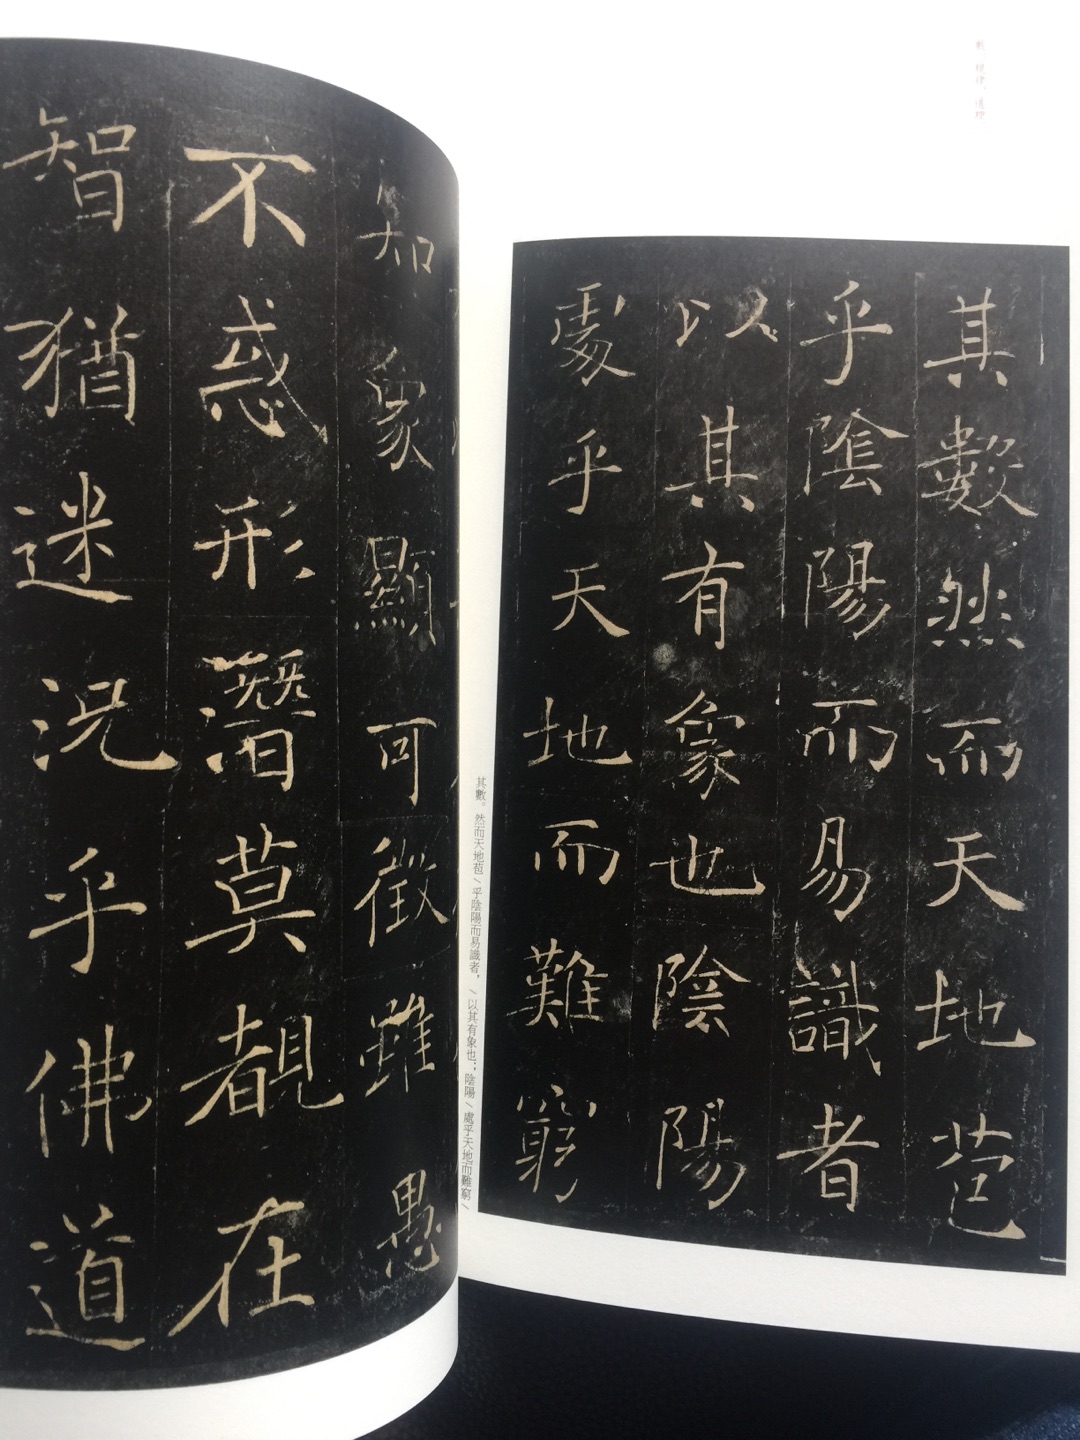 其數然而天地苞
乎陰陽而易識者
以其有象也陰陽
處乎天地而難窮
其數。然而天地苞／乎陰陽而易識者，／以其有象也；陰陽／處乎天地而難窮／
知象顯可徵雖愚
不惑形潛莫覩在
智猶迷況乎佛道